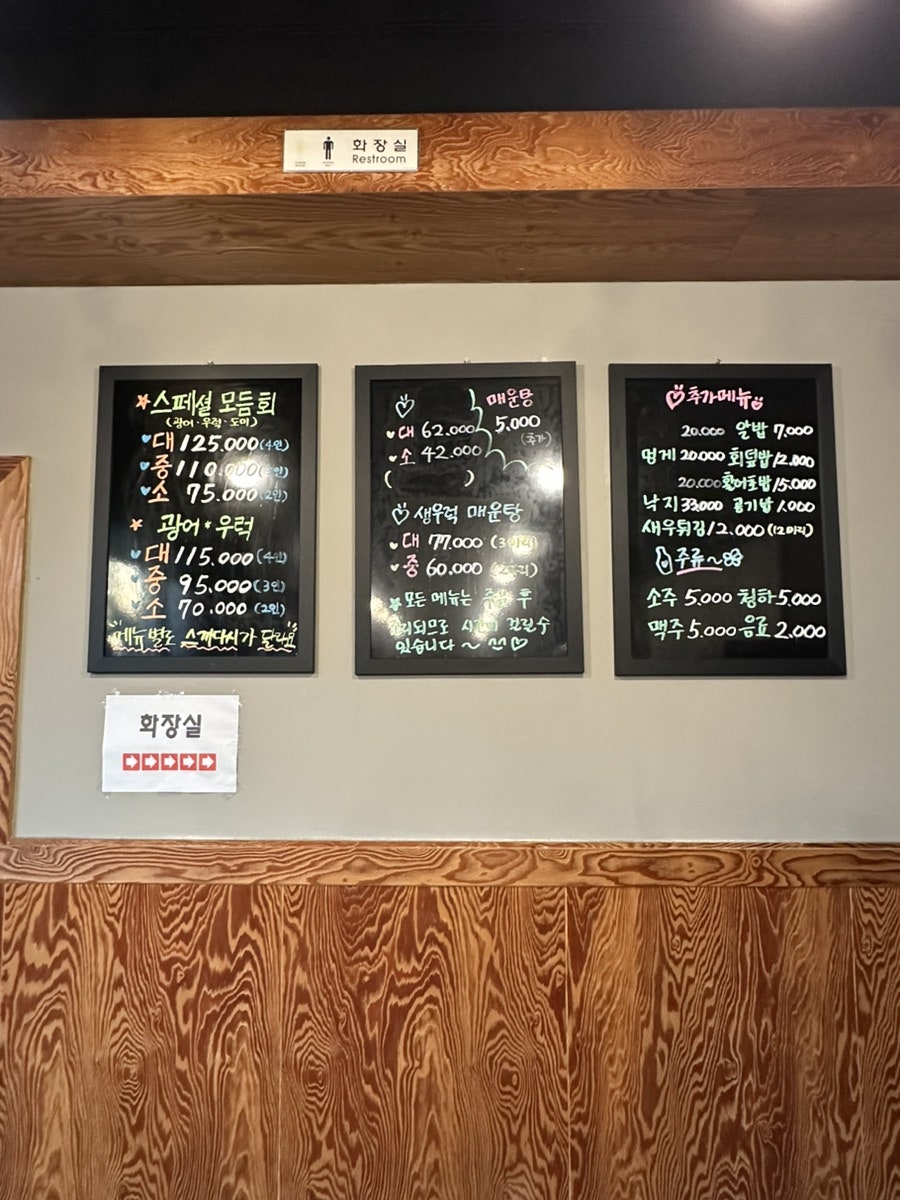 화장실
Restroom
스페셜 모듬회
(광어·우럭·도미)
대 125.000 (4인)
중 110.000
소 75.000 (2인)
광어·우럭
대 115.000 (4인)
중 95.000 (3인)
소 70.000 (2인)
메뉴별로 스끼다시가 달라요
매운탕
5,000
(추가)
대 62.000
소 42.000
( )
생우럭 매운탕
대 77.000
중 60.000
모든 메뉴는 주문 후
조리되므로 시간이 걸릴수
있습니다~
추가메뉴
20.000 알밥 7,000
멍게 20.000 회덮밥 12.000
20.000 15.000
낙지 33.000 공기밥 1.000
새우튀김 12.000 (12마리)
주류~
소주 5.000 청하 5.000
맥주 5.000 음료 2.000
화장실